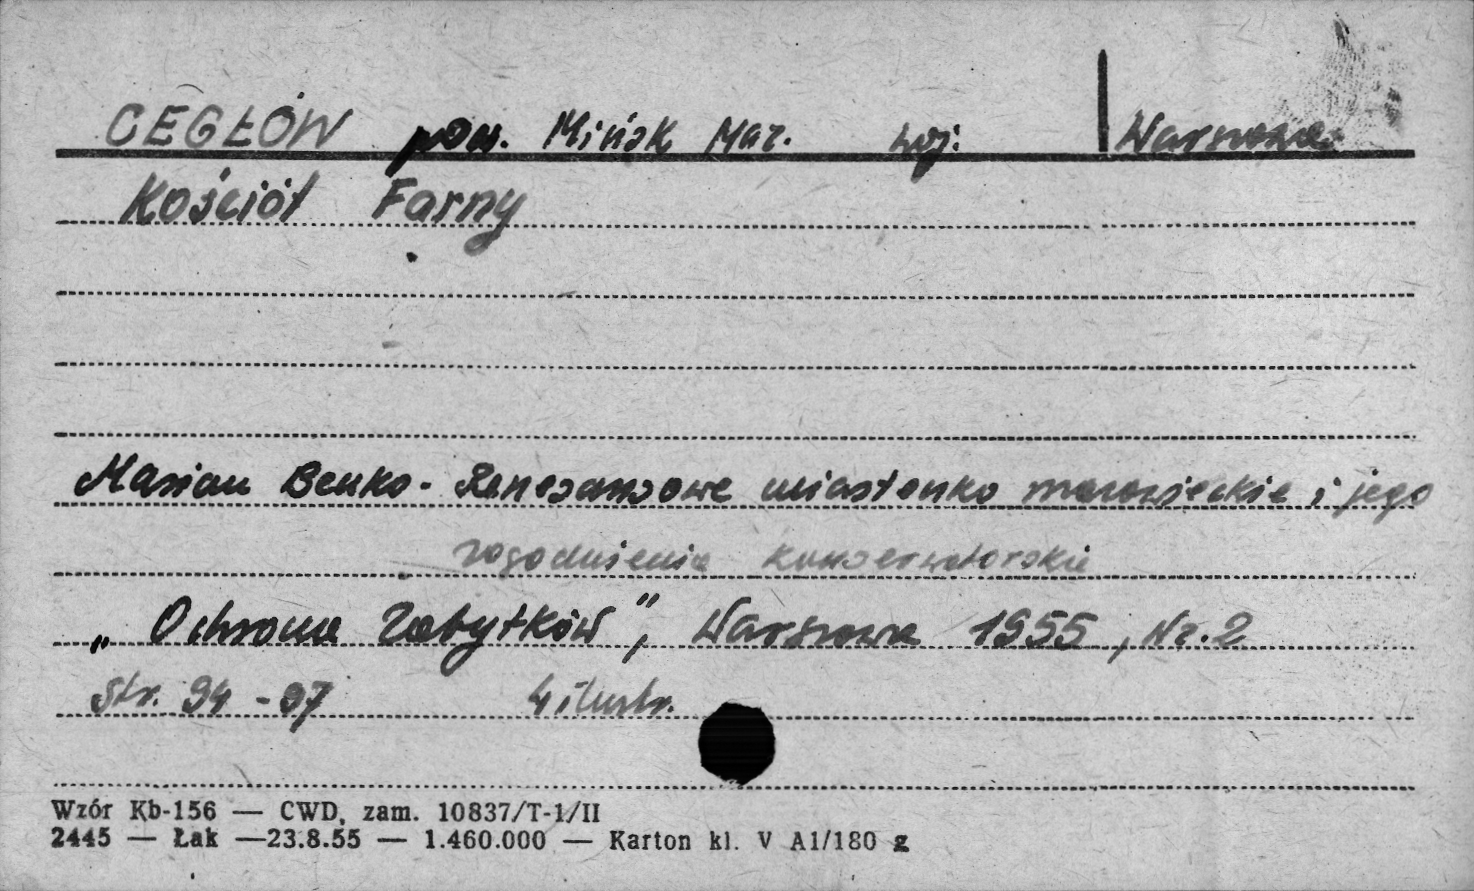 CEGŁÓW pow. Mińsk Maz. woj. Warszawa
Kościół Farny
Marian Benko - Renesansowe miastenko mazowieckie i jego
zagadnienia konserwatorskie
„Ochrona Zabytków”, Warszawa 1955, Nr. 2
Str. 94 - 97 4 ilustr.
Wzór Kb-156 — CWD, zam. 10837/T-1/II
2445 — Łak —23.8.55 — 1.460.000 — Karton kl. V A1/180 g